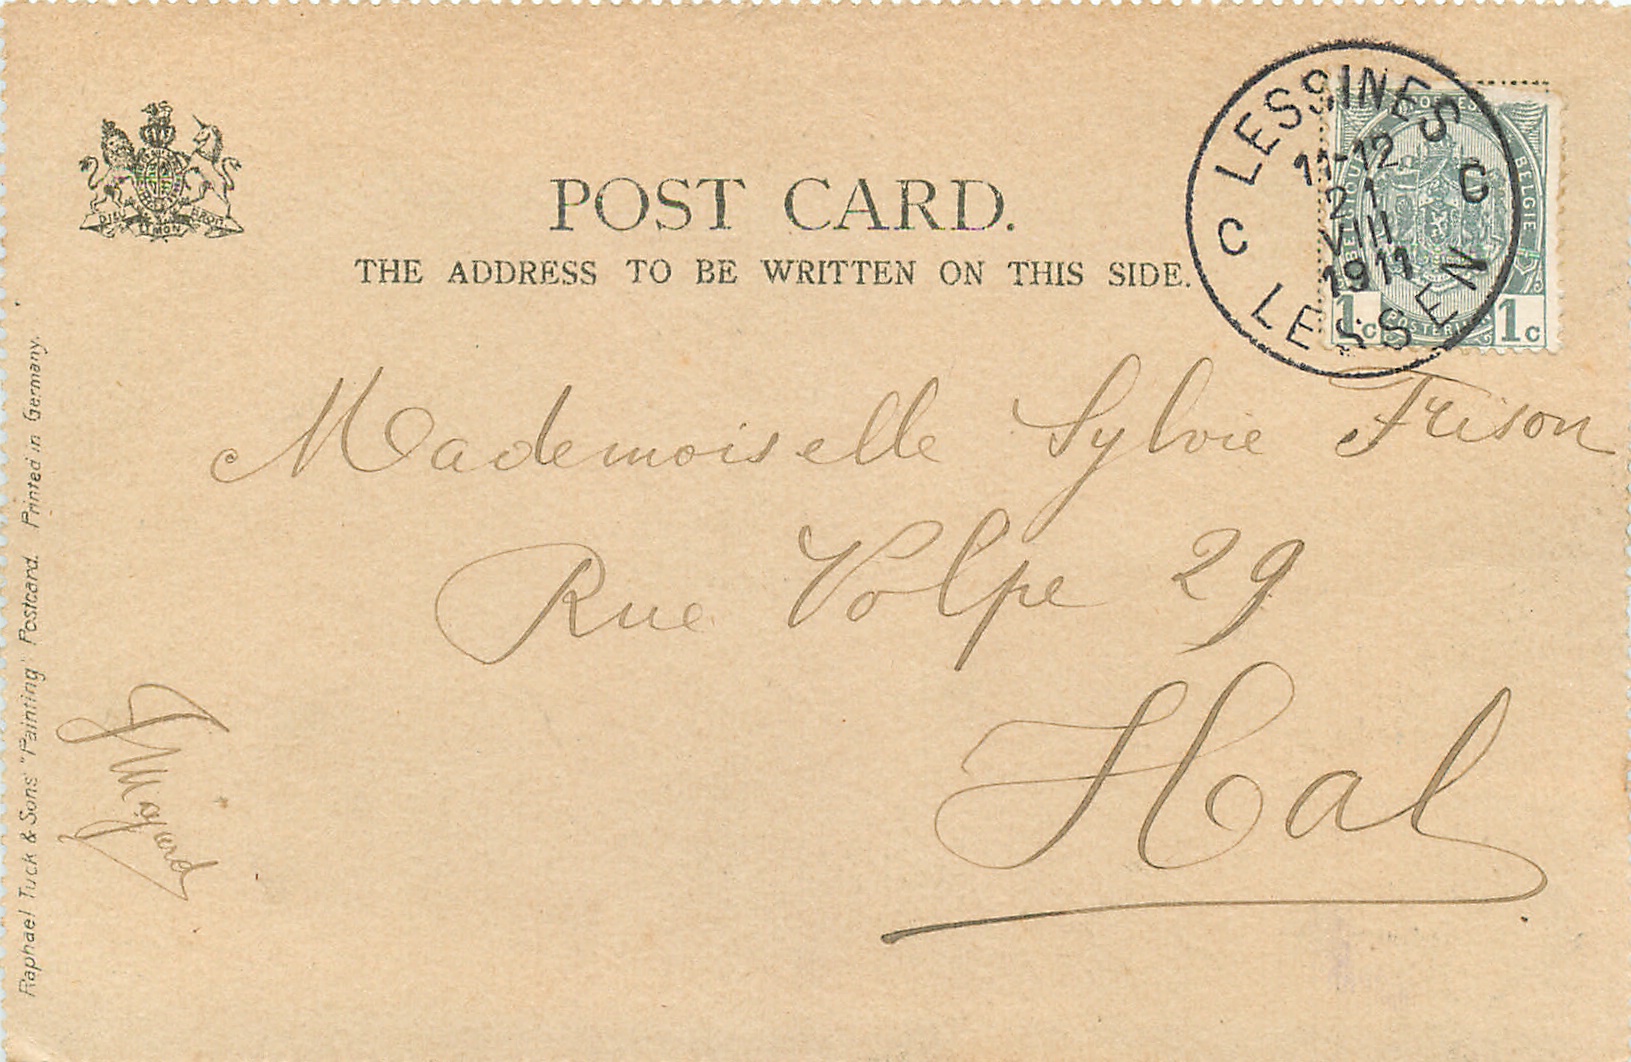 POST CARD.
THE ADDRESS TO BE WRITTEN ON THIS SIDE.
DIEU ET MON DROIT
LESSINES
11-12
21
VIII
1911
C C
LESSEN
BELGIQUE
BELGIË
POSTERIJEN
1c 1c
Mademoiselle Sylvie Frison
Rue Volpe 29
Hal
Raphael Tuck & Sons' "Painting" Postcard. Printed in Germany.